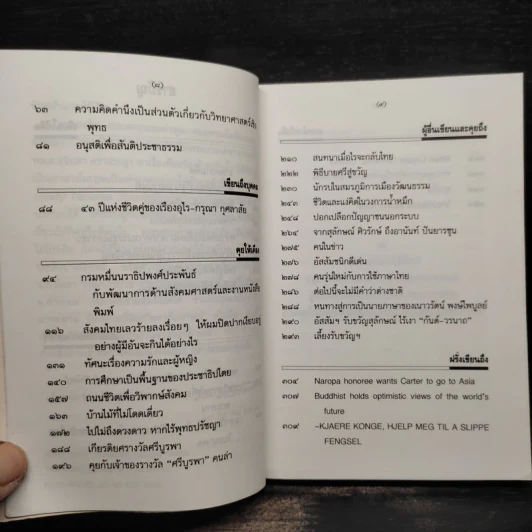 (๘)
๖๓ ความคิดคำนึงเป็นส่วนตัวเกี่ยวกับวิทยาศาสตร์สั
พุทธ
๘๑ อนุสติเพื่อสันติประชาธรรม
เขียนถึงบุคคล
๘๘ ๔๓ ปีแห่งชีวิตคู่ของเรืองอุไร-กรุณา กุศลาสัย
คุยให้
๙๔ กรมหมื่นนราธิปพงศ์ประพันธ์
กับพัฒนาการด้านสังคมศาสตร์และงานหนังสือ
พิมพ์
๑๑๖ สังคมไทยเลวร้ายลงเรื่อยๆ ให้ผมปิดปากเงียบ
อย่างผู้มีอันจะกินได้อย่างไร
๑๓๑ ทัศนะเรื่องความรักและผู้หญิง
๑๔๐ การศึกษาเป็นพื้นฐานของประชาธิปไตย
๑๕๗ ถนนชีวิตเพื่อวิพากษ์สังคม
๑๖๓ บ้านไม้ที่ไม่โดดเดี่ยว
๑๗๒ ไปไม่ถึงดวงดาว หากไร้พุทธปรัชญา
๑๘๘ เกียรติยศรางวัลศรีบูรพา
๑๙๖ คุยกับเจ้าของรางวัล "ศรีบูรพา" คนล่า
(๙)
ผู้อื่นเขียนและคุยถึง
๒๑๐ สนทนาเมื่อไรจะกลับไทย
๒๒๒ พิธีบายศรีสู่ขวัญ
๒๓๐ นักรบในสมรภูมิการเมืองวัฒนธรรม
๒๔๓ ชีวิตและแง่คิดในวงการน้ำหมึก
๒๔๘ ปอกเปลือกปัญญาชนนอกระบบ
๒๖๔ จากสุลักษณ์ ศิวรักษ์ ถึงอานันท์ ปันยารชุน
๒๗๕ คนในข่าว
๒๗๖ อัสสัมชนิกดีเด่น
๒๗๘ คนรุ่นใหม่กับการใช้ภาษาไทย
๒๘๖ ต่อไปนี้จะไม่มีคำว่าต่างชาติ
๒๘๘ หนทางสู่การเป็นนายภาษาของเนาวรัตน์ พงษ์ไพบูลย์
๒๙๐ อัสสัมฯ รับขวัญสุลักษณ์ ไร้เงา "กันต์-วรนาถ"
๒๙๓ เลี้ยงรับขวัญฯ
ฝรั่งเขียนถึง
๓๐๔ Naropa honoree wants Carter to go to Asia
๓๐๗ Buddhist holds optimistic views of the world's
future
๓๐๙ -KJAERE KONGE, HJELP MEG TIL A SLIPPE
FENGSEL